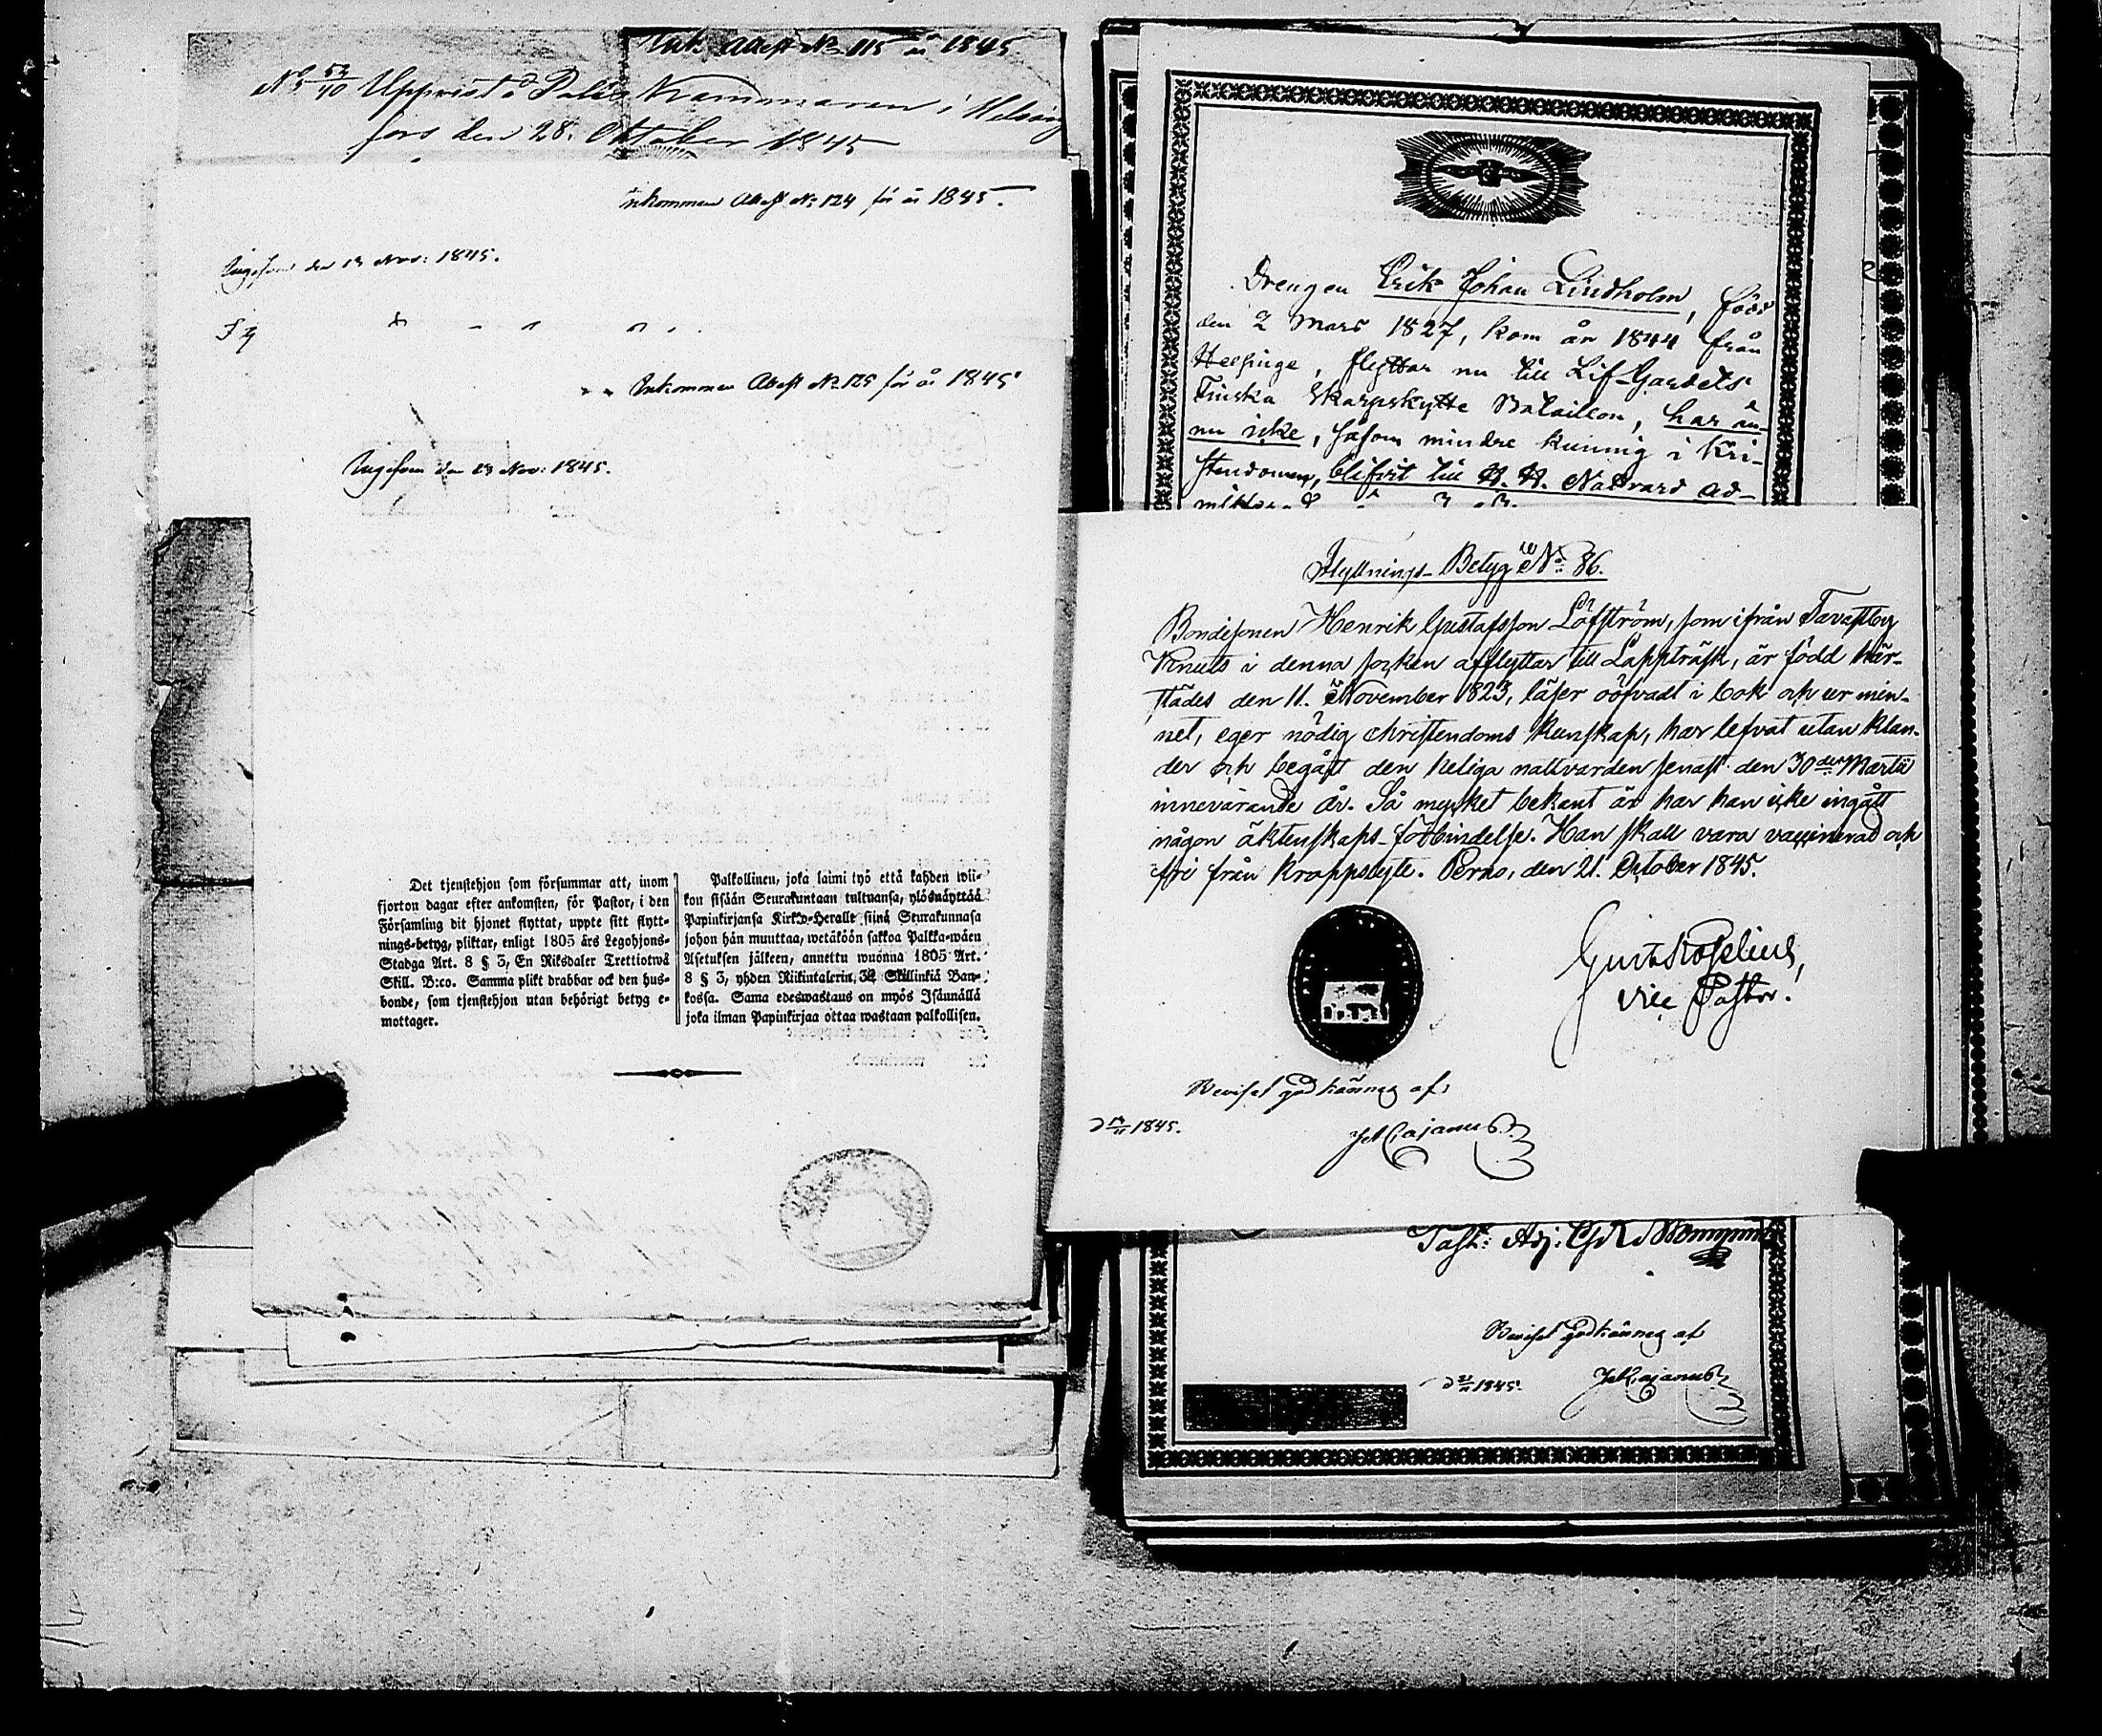 Ink. Attest No 115 år 1845
No 52/40 Uppvist å Police Kammaren i Helsing
fors den 28. October 1845
Inkommen Attest No 124 för år 1845.
den 13 Nov: 1845.
Inkommen Attest No 125 för år 1845
den 13 Nov: 1845.
Det tjenstehjon som försummar att, inom
fjorton dagar efter ankomsten, för Pastor, i den
Församling dit hjonet flyttat, uppte sitt flytt-
nings-betyg, pliktar, enligt 1805 års Legohjons-
Stadga Art. 8 § 3, En Riksdaler Trettiotwå
Skill. B:co. Samma plikt drabbar ock den hus-
bonde, som tjenstehjon utan behörigt betyg e-
mottager.
Palkollinen, joka laimi työ että kahden wii-
kon sisään Seurakuntaan tultuansa, ylösnäyttää
Papinkirjansa Kirkko-Herralle siinä Seurakunnasa
johon hän muuttaa, wetäköön sakkoa Palkka-wäen
Asetuksen jälkeen, annettu wuonna 1805 Art.
8 § 3, yhden Riikintalerin, 32 Skillinkiä Ban-
kossa. Sama edeswastaus on myös Isännällä
joka ilman Papinkirjaa ottaa wastaan palkollisen.
Drengen Erik Johan Lindholm, född
den 2 Mars 1827, kom år 1844 från
Helsinge, flyttar nu till Lif-Gardets
Finska Skarpskytte Bataillon, har än-
nu icke, såsom mindre kunnig i Kri-
stendomen, blifvit till H. H. Nattvard ad-
Flyttnings-Betyg No 86.
Bondesonen Henrik Gustafsson Löfström, som ifrån Tavastby
Knuts i denna socken afflyttar till Lappträsk, är född här-
städes den 11. November 1823, läser öfvadt i bok och ur min-
net, eger nödig christendoms kunskap, har lefvat utan klan-
der och begått den heliga nattvarden senast den 30de Martii
innevarande år. Så mycket bekant är har han icke ingått
någon äktenskaps-förbindelse. Han skall vara vaccinerad och
fri från kroppslyte. Perno, den 21. October 1845.
vice Pastor.
Beviset godkännes af
1845.
J Cajanus
Past: Adj:
Beviset godkännes af
1845.
J Cajanus